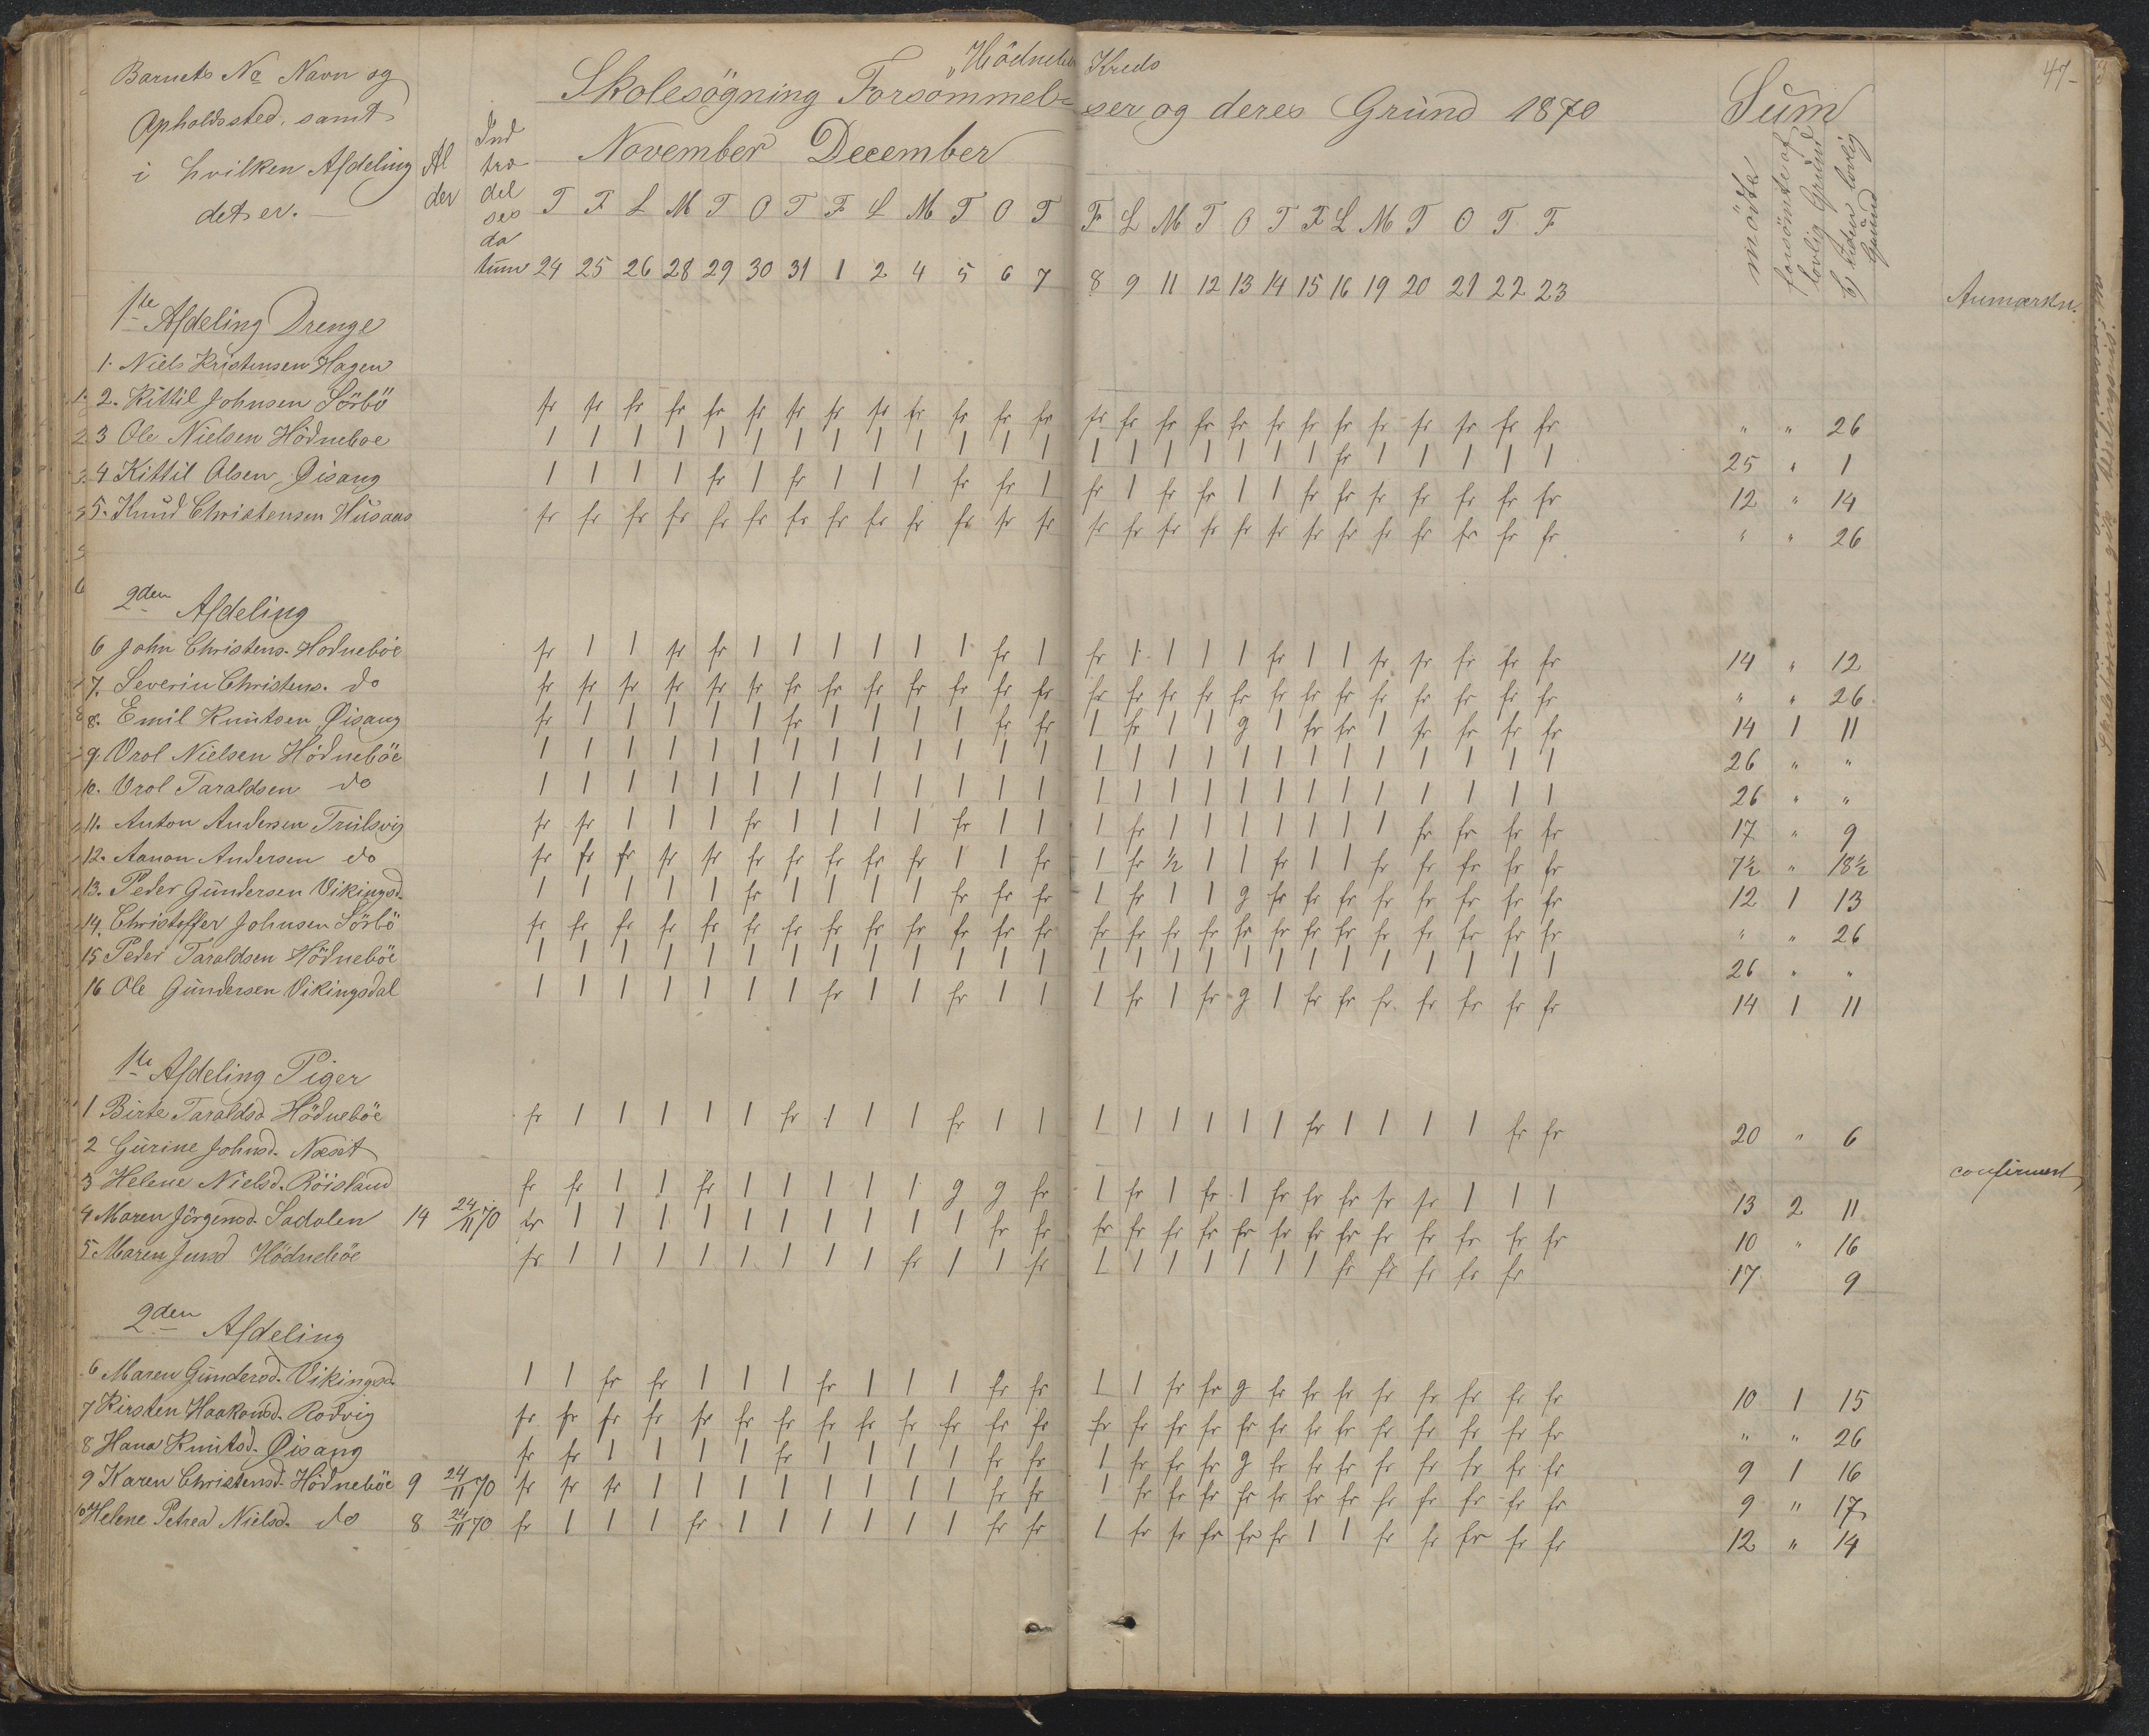 47-
"Hödnebö Kreds
Skolesögning Forsömmelser og deres Grund 1870
Barnets No Navn og
Opholdssted, samt
i hvilken Afdeling
det er.
Al
der
Ind
træ
del
ses
da
tum
November December
Sum
mödte
forsömte af
lovlig Grund
b) uden lovlig
Grund
Anmærkn.
T F L M T O T F L M T O T F L M T O T F L M T O T F
24 25 26 28 29 30 31 1 2 4 5 6 7 8 9 11 12 13 14 15 16 19 20 21 22 23
1ste Afdeling Drenge
1. Niels Kristensen Hagen
2. Kittil Johnsen Sörbö fr fr fr fr fr fr fr fr fr fr fr fr fr fr fr fr fr fr fr fr fr fr fr fr fr fr " " 26
3 Ole Nielsen Hödneboe 1 1 1 1 1 1 1 1 1 1 1 1 1 1 1 1 1 1 1 1 fr 1 1 1 1 1 25 " 1
4 Kittil Olsen Øisang 1 1 1 1 fr 1 fr 1 1 1 fr fr 1 fr 1 fr fr 1 1 fr fr fr fr fr fr fr 12 " 14
5. Knud Christensen Husaas fr fr fr fr fr fr fr fr fr fr fr fr fr fr fr fr fr fr fr fr fr fr fr fr fr fr " " 26
2den Afdeling
6 John Christens. Hödneböe fr 1 1 fr fr 1 1 1 1 1 1 fr 1 fr 1 1 1 1 fr 1 1 fr fr fr fr fr 14 " 12
7. Severin Christens. do fr fr fr fr fr fr fr fr fr fr fr fr fr fr fr fr fr fr fr fr fr fr fr fr fr fr " " 26
8. Emil Knutsen Øisang fr 1 1 1 1 1 fr 1 1 1 1 fr fr 1 fr 1 1 g 1 fr fr 1 fr fr fr fr 14 1 11
9. Orol Nielsen Hödneböe 1 1 1 1 1 1 1 1 1 1 1 1 1 1 1 1 1 1 1 1 1 1 1 1 1 1 26 " "
10. Orol Taraldsen do 1 1 1 1 1 1 1 1 1 1 1 1 1 1 1 1 1 1 1 1 1 1 1 1 1 1 26 " "
11. Anton Andersen Trulsvig fr fr 1 1 1 fr 1 1 1 1 fr 1 1 1 fr 1 1 1 1 1 1 1 fr fr fr fr 17 " 9
12. Aanon Andersen do fr fr fr fr fr fr fr fr fr fr 1 1 fr 1 fr ½ 1 1 fr 1 1 fr fr fr fr fr 7½ " 18½
13. Peder Gundersen Vikingsd. 1 1 1 1 1 fr 1 1 1 1 fr fr fr 1 fr 1 1 g fr fr fr fr fr fr fr fr 12 1 13
14. Christoffer Johnsen Sörbö fr fr fr fr fr fr fr fr fr fr fr fr fr fr fr fr fr fr fr fr fr fr fr fr fr fr " " 26
15 Peder Taraldsen Hödneböe 1 1 1 1 1 1 1 1 1 1 1 1 1 1 1 1 1 1 1 1 1 1 1 1 1 1 26 " "
16 Ole Gundersen Vikingsdal 1 1 1 1 1 1 1 fr 1 1 fr 1 1 1 fr 1 fr g 1 fr fr fr fr fr fr fr 14 1 11
1ste Afdeling Piger
1 Birte Taraldsd Hödneböe fr 1 1 1 1 1 fr 1 1 1 fr 1 1 1 1 1 1 1 1 fr 1 1 1 1 fr fr 20 " 6
2 Gurine Johnsd. Næset confirmert
3 Helene Nielsd. Röisland fr fr 1 1 fr 1 1 1 1 1 g g fr 1 fr 1 fr 1 fr fr fr fr fr 1 1 1 13 2 11
4 Maren Jörgensd. Sadalen 14 24/11 70 fr 1 1 1 1 1 1 1 1 1 1 fr fr fr fr fr fr fr fr fr fr fr fr fr fr fr 10 " 16
5 Maren Jensd Hödneböe fr 1 1 1 1 1 1 1 1 fr 1 1 fr 1 1 1 1 1 1 1 fr fr fr fr fr 17 9
2den Afdeling
6 Maren Gundersd. Vikingsd. 1 1 fr fr 1 1 1 fr 1 1 1 fr fr 1 1 fr fr g fr fr fr fr fr fr fr fr 10 1 15
7 Kirsten Haakonsd. Rødvig fr fr fr fr fr fr fr fr fr fr fr fr fr fr fr fr fr fr fr fr fr fr fr fr fr fr " " 26
8 Hana Knutsd. Øisang fr fr 1 1 1 1 fr 1 1 1 1 fr fr 1 fr fr fr g fr fr fr fr fr fr fr fr 9 1 16
9 Karen Christensd. Hödneböe 9 24/11 70 fr fr fr 1 1 1 1 1 1 1 1 fr fr 1 fr fr fr fr fr fr fr fr fr fr fr fr 9 " 17
10 Helene Petrea Nielsd. do 8 24/11 70 fr 1 1 1 fr 1 1 1 1 1 1 fr fr 1 fr fr fr fr fr 1 1 fr fr fr fr fr 12 " 14